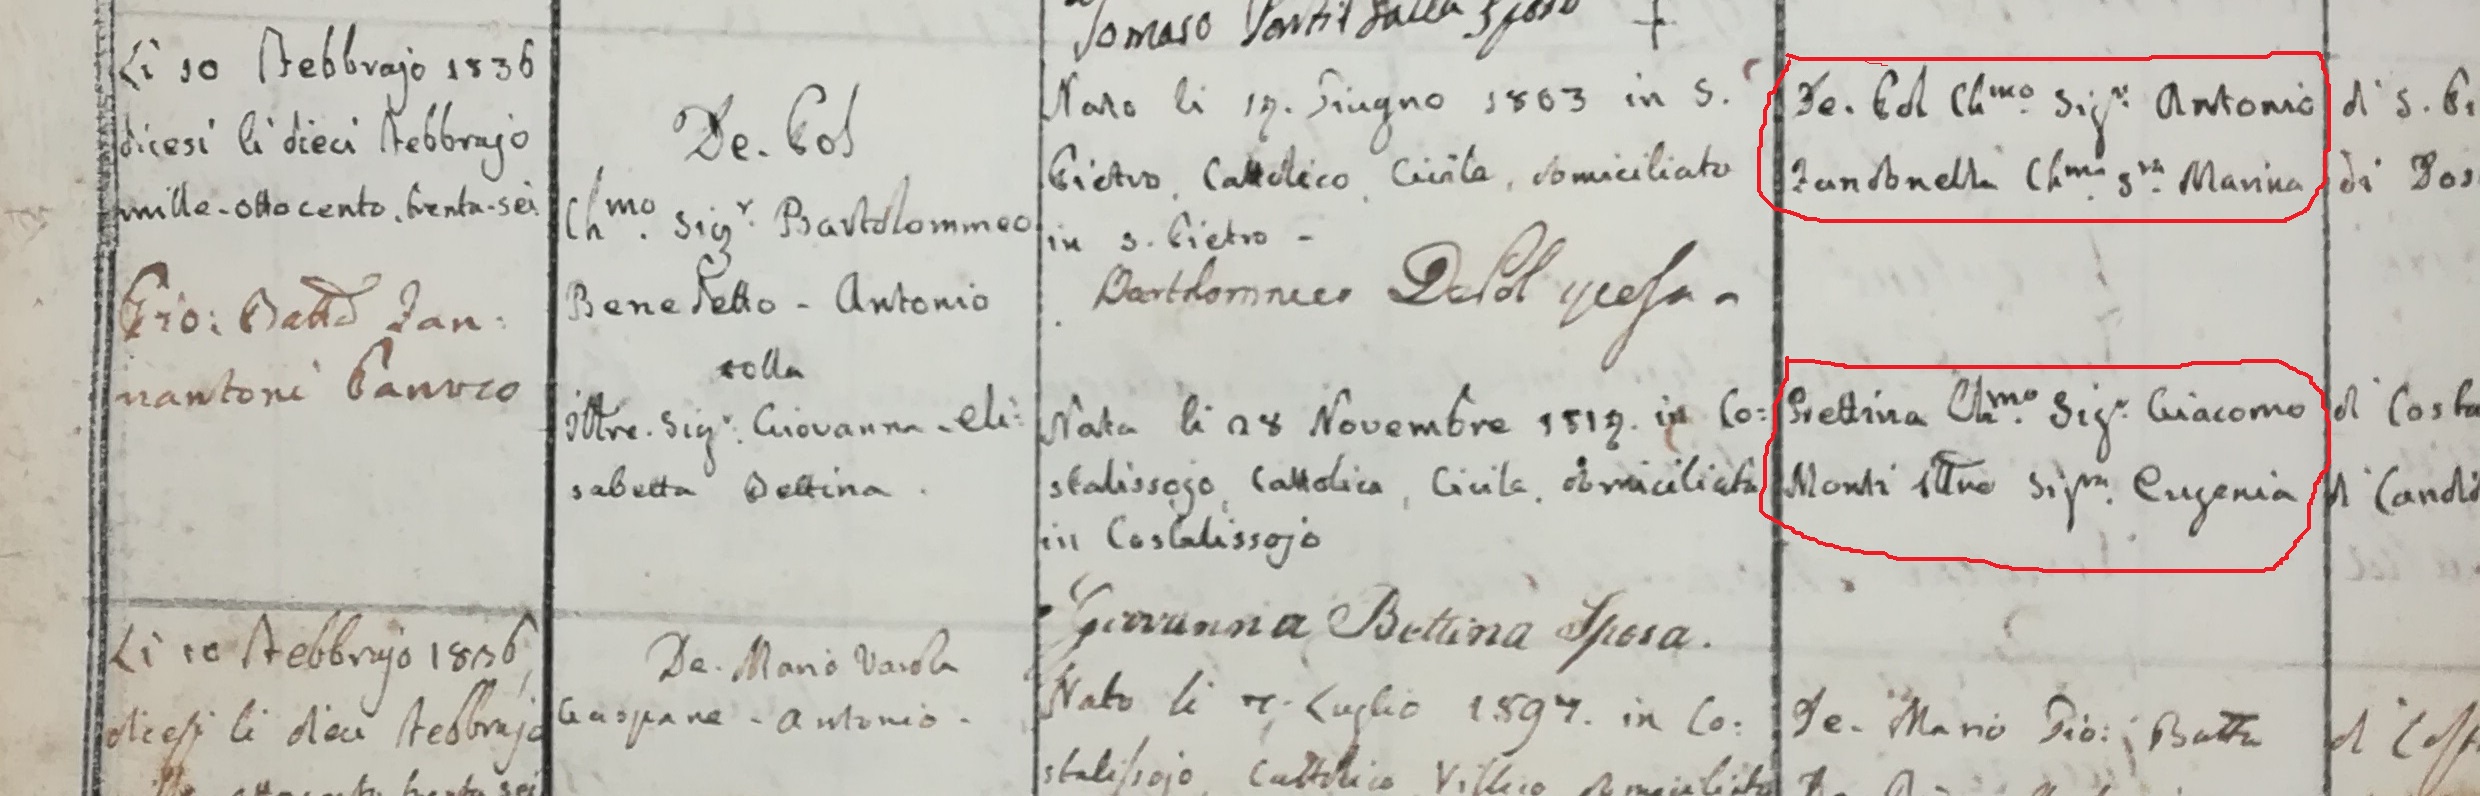 Tomaso dalla Sposo
Li 10 Febbrajo 1836
dicesi li dieci Febbrajo
mille-ottocento-trenta-sei
Gio: Batta Zan:
nantoni Parroco
De. Pol
Chmo. Sigr. Bartolommeo
Benedetto - Antonio
colla
Illre. Sigr. Giovanna - Eli:
sabetta Bettina.
Nato li 19. Giugno 1803 in S.
Pietro, Cattolico, Civile, domiciliato
in S. Pietro -
Bartholommeo DePol
Nata li 28 Novembre 1819. in Co:
stalissojo, Cattolica, Civile, domiciliata
in Costalissojo
Giovanna Bettina Sposa.
De. Pol Chmo Sigr. Antonio
Zandonella Chma Sra. Marina
Bettina Chmo. Sigr. Giacomo
Monti Illre Sigra. Eugenia
di S. Pi
di Dos
di Costa
di Candi
Li 10 Febbrajo 1836,
dicesi li dieci Febbrajo
De. Mario Varola
Gaspare - Antonio -
Nato li 7. Luglio 1797. in Co:
stalissojo, Cattolico Villico domiciliato
De. Mario Gio: Batta
di Cost